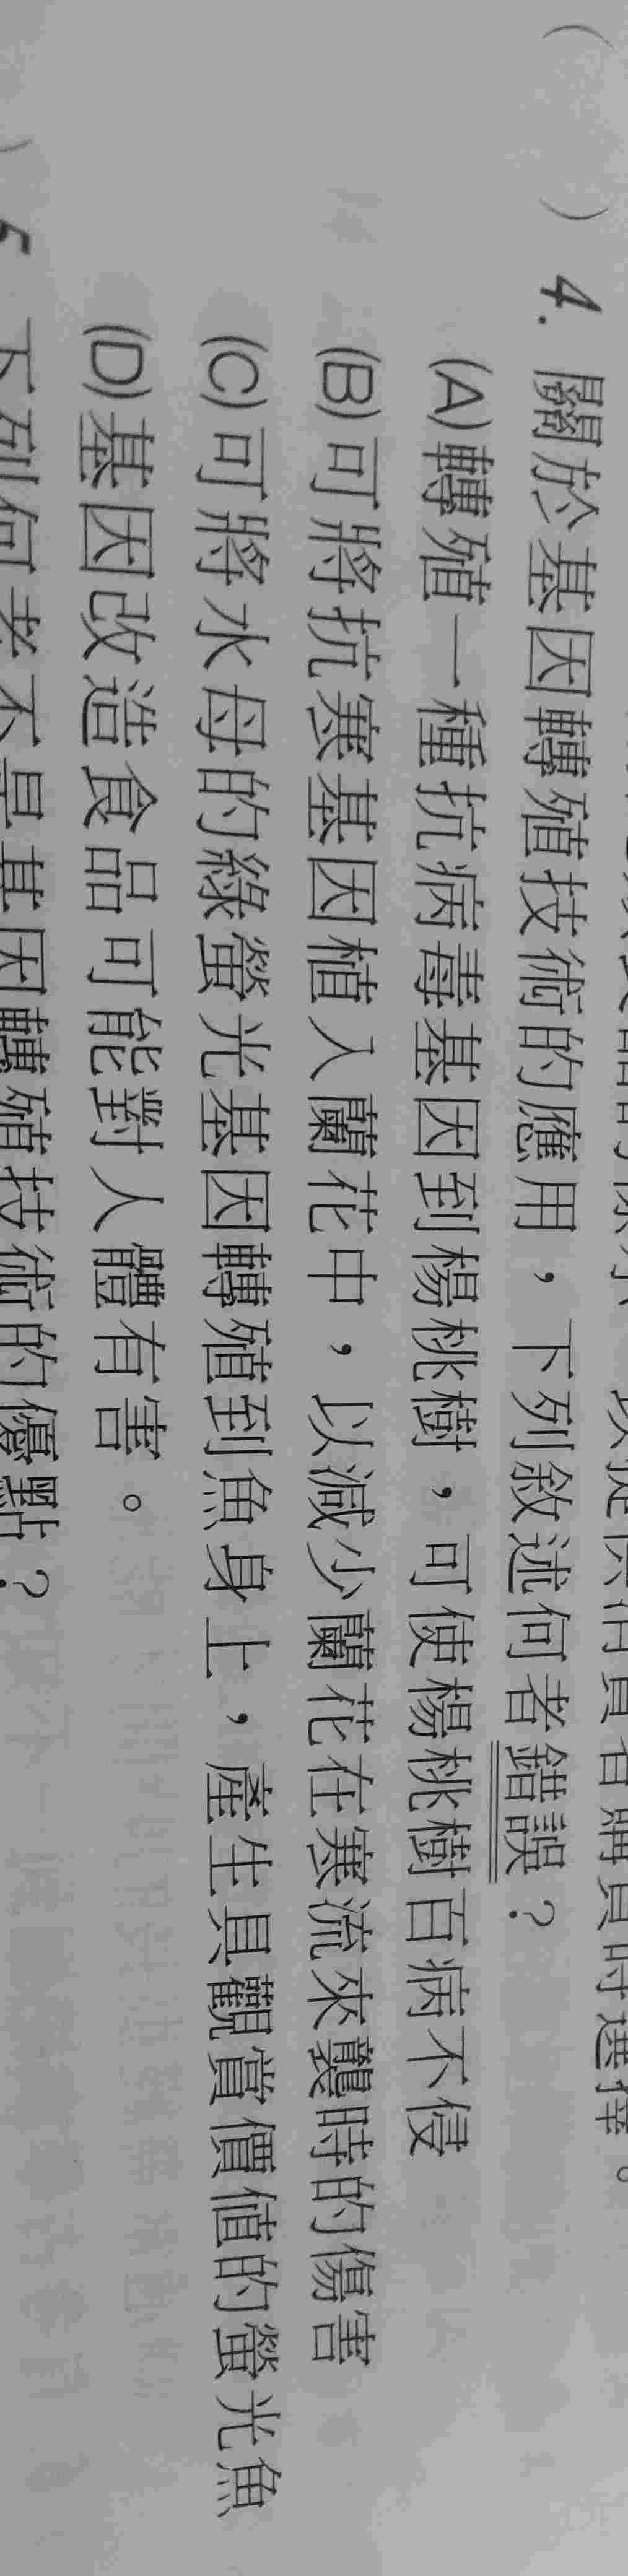 購買時選擇。
( ) 4. 關於基因轉殖技術的應用，下列敘述何者錯誤？
(A)轉殖一種抗病毒基因到楊桃樹，可使楊桃樹百病不侵
(B)可將抗寒基因植入蘭花中，以減少蘭花在寒流來襲時的傷害
(C)可將水母的綠螢光基因轉殖到魚身上，產生具觀賞價值的螢光魚
(D)基因改造食品可能對人體有害。
) 5 下列何者不是基因轉殖技術的優點？